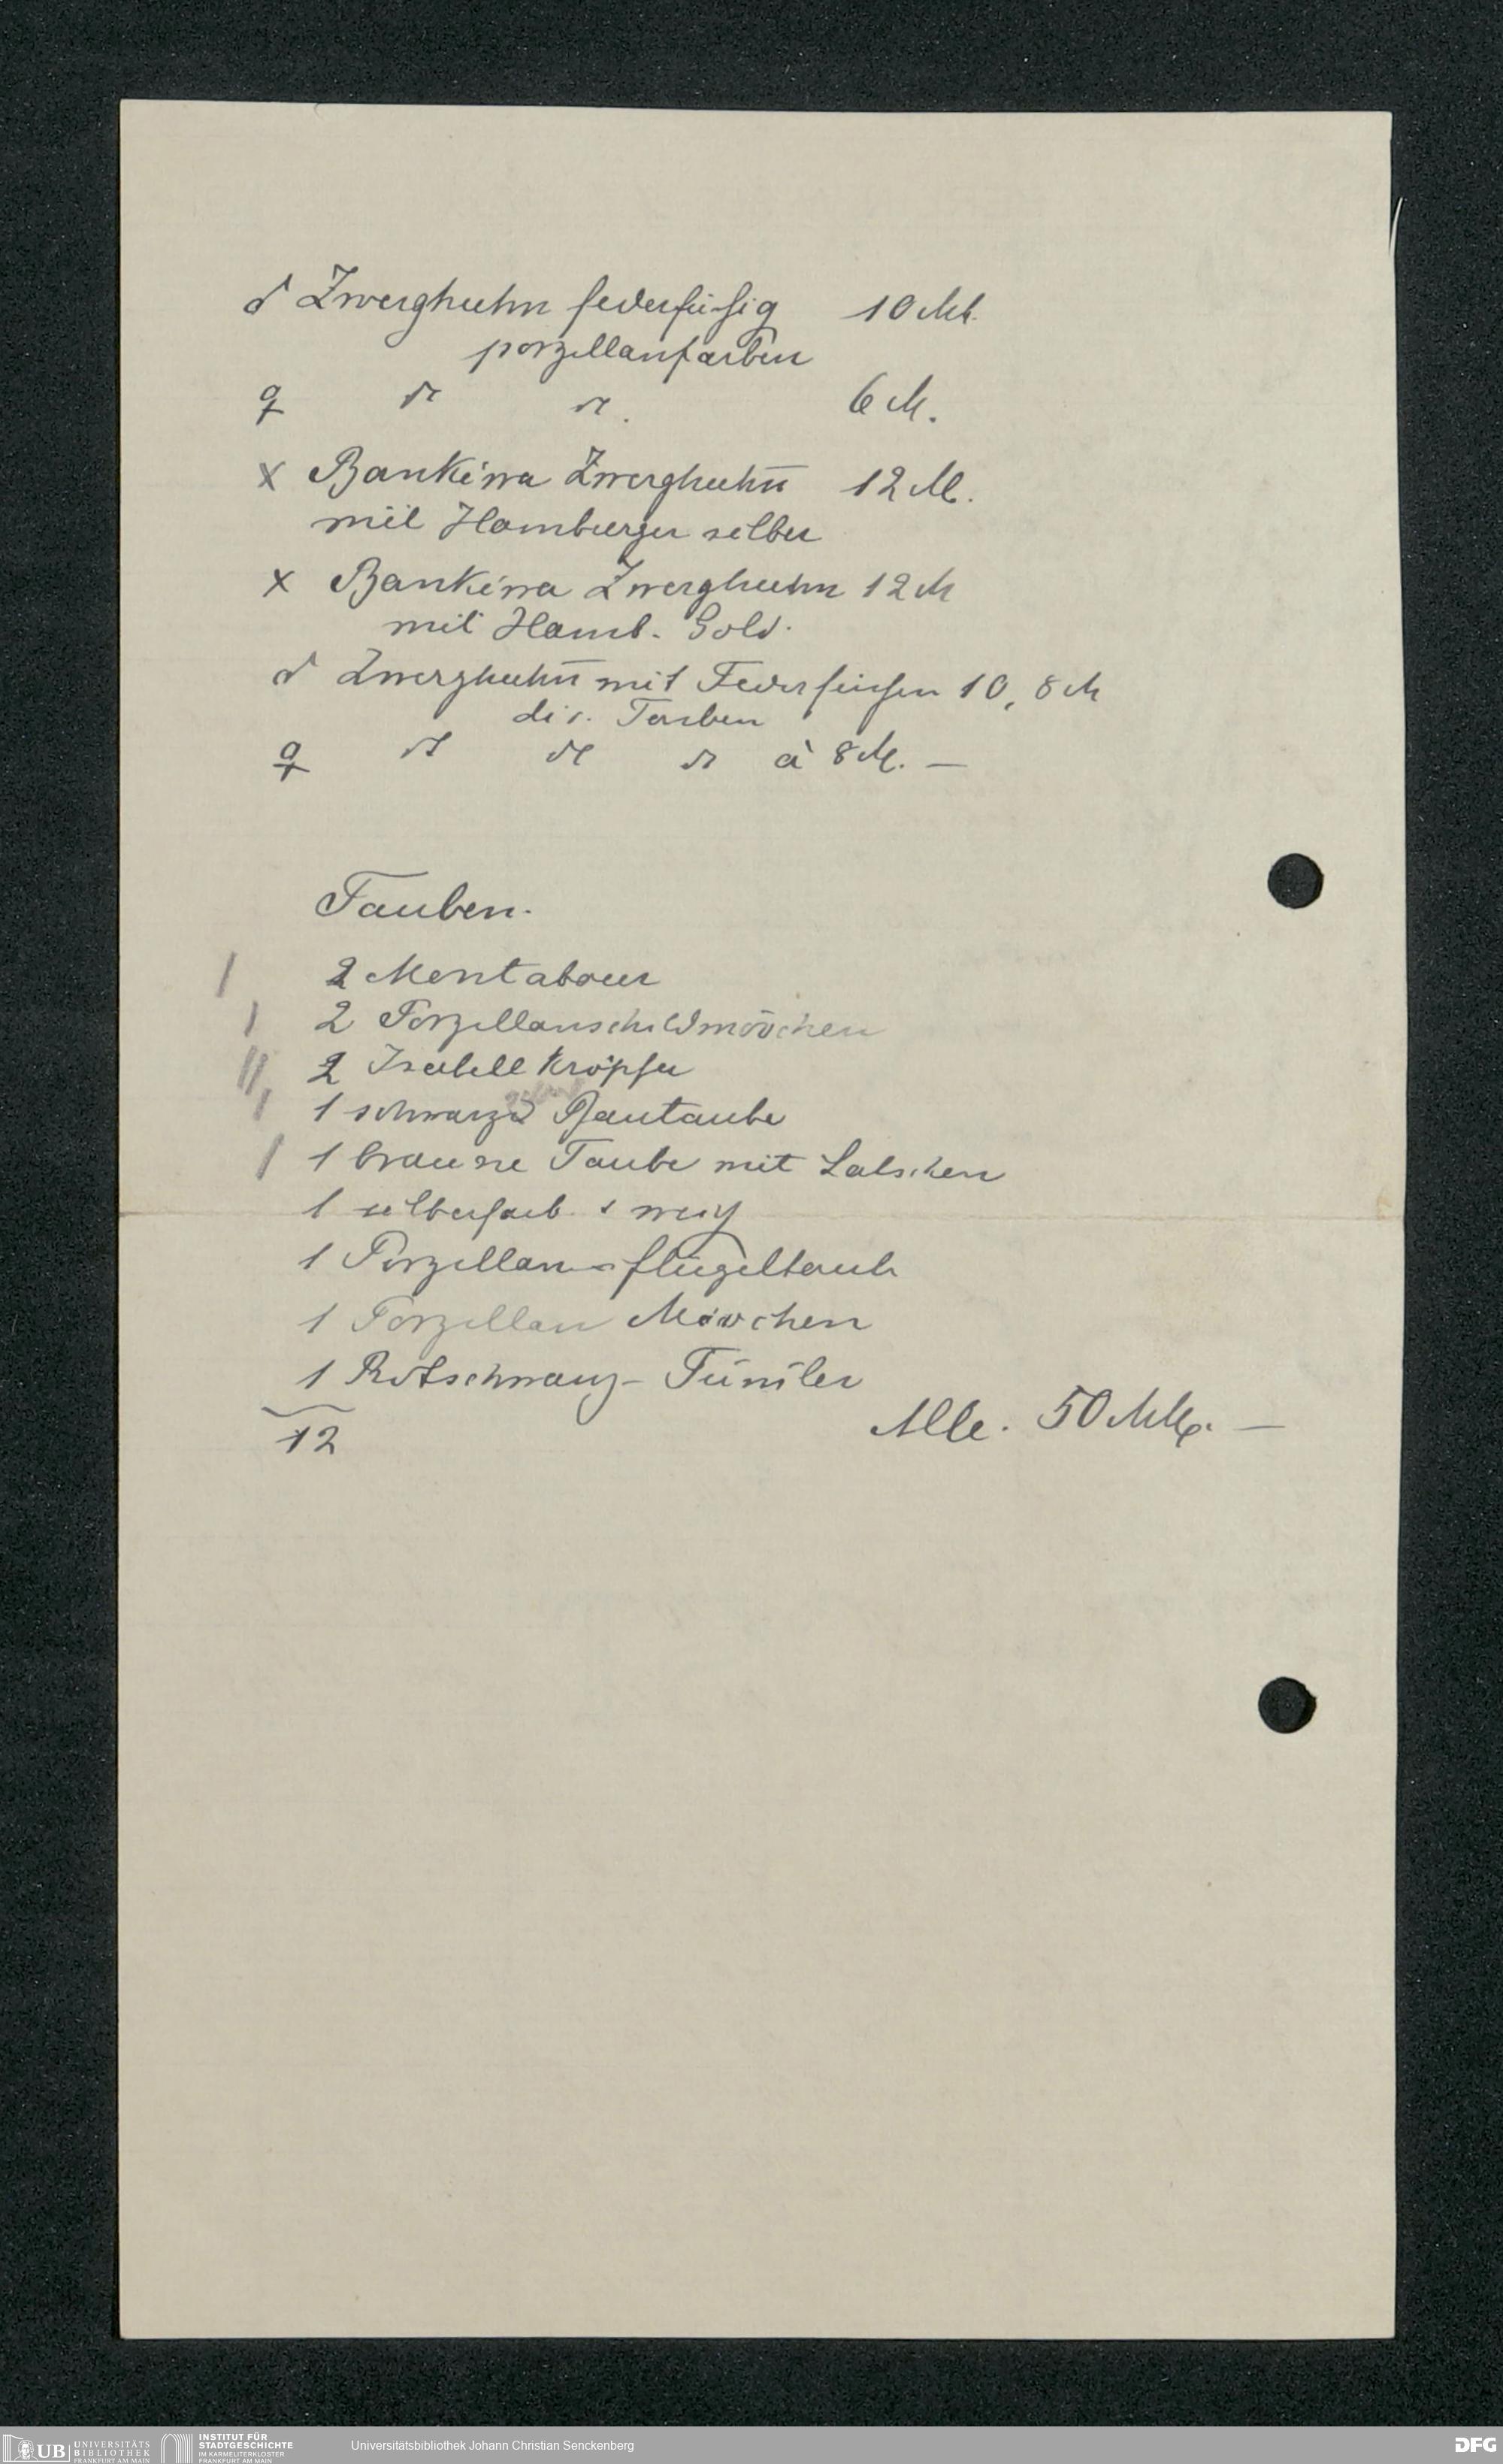 ♂ Zwerghuhn federfüßig 10 Mk.
porzellanfarben
♀ 6 M.
x Bankiwa Zwerghuhn̅ 12 M.
mit Hamburger silber
x Bankiwa Zwerghuhn 12 M
mit Hamb. Gold.
♂ Zwerghuhn̅ mit Federfüßen 10, 8 M
div. Farben
♀ à 8 M. —
Tauben.
2 Mentabour
2 Porzellanschildmövchen
2 Isabell Kröpfer
1 schwarze Bautaube
1 braune Taube mit Latschen
1 silberfarb. & weiß
1 Porzellan-flügeltaube
1 Porzellan Mövchen
1 Rotschwanz-Tüm̅ler
12
Alle. 50 Mk. —
UB UNIVERSITÄTS
BIBLIOTHEK
FRANKFURT AM MAIN
INSTITUT FÜR
STADTGESCHICHTE
IM KARMELITERKLOSTER
FRANKFURT AM MAIN
Universitätsbibliothek Johann Christian Senckenberg
DFG